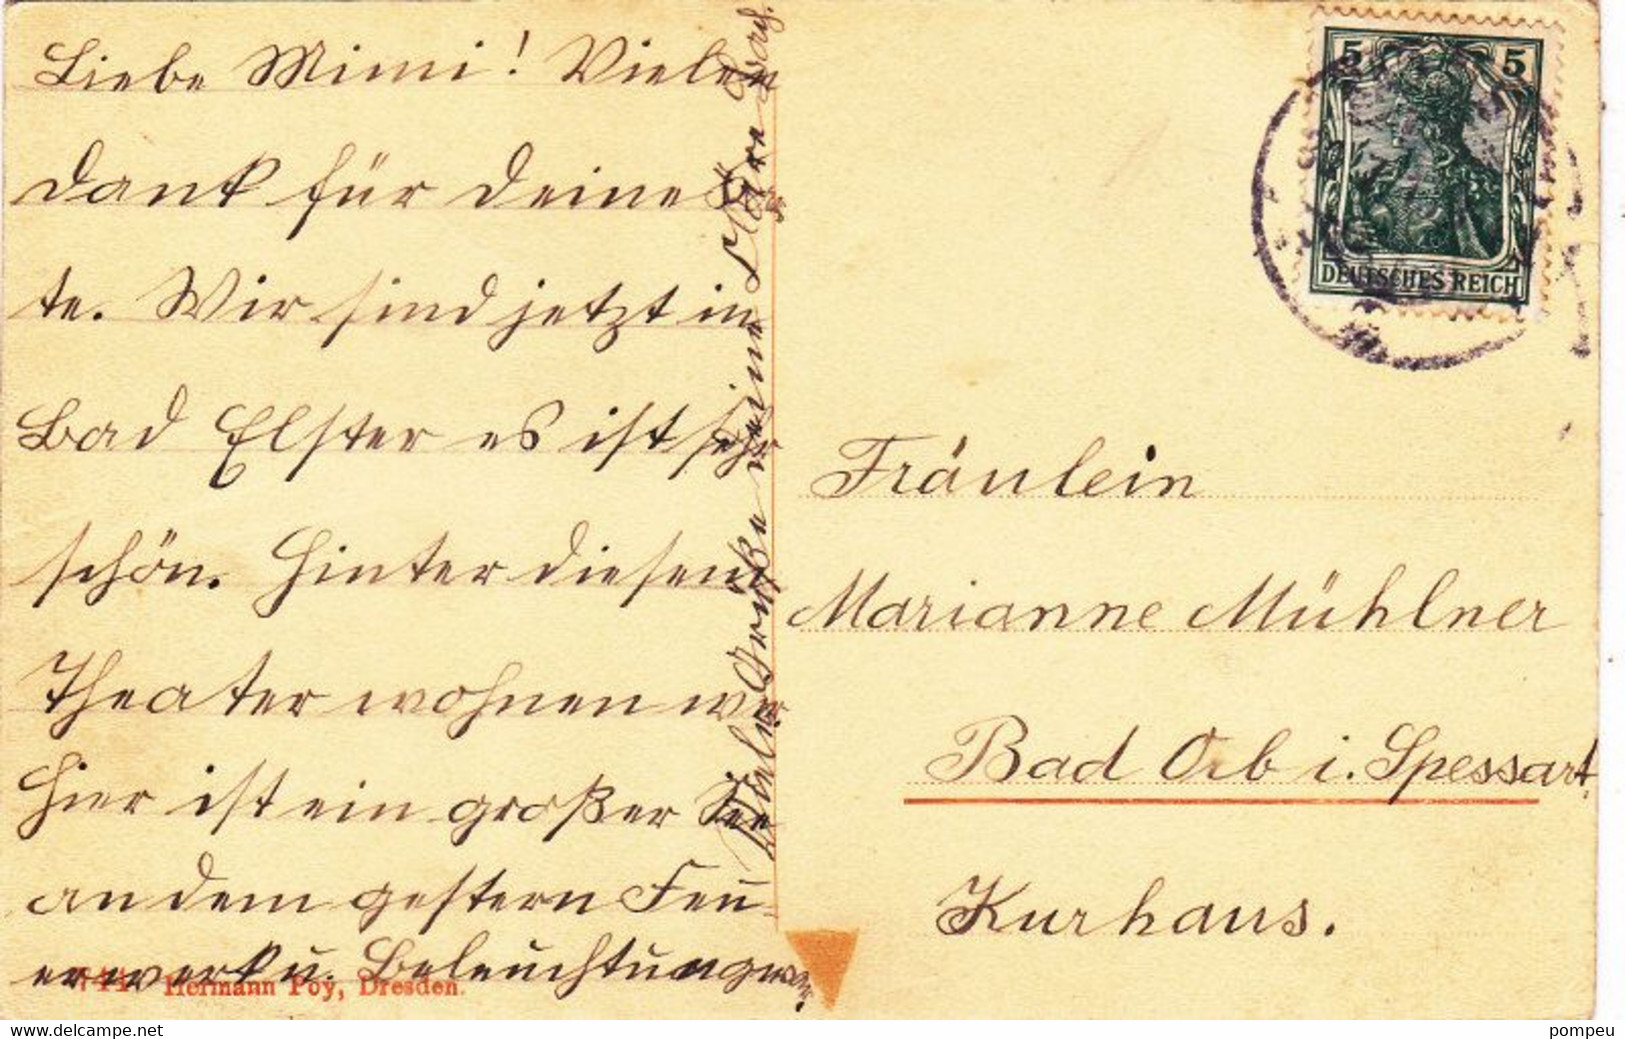 Liebe Mimi! Vielen
Dank für Deine Kar
te. Wir sind jetzt in
Bad Elster es ist sehr
schön. Hinter diesem
Theater wohnen wir.
Hier ist ein großer See
an dem gestern Feu-
erwerk u. Beleuchtung war.
Viele Grüße Deine
5 5
DEUTSCHES REICH
Fräulein
Marianne Mühlner
Bad Orb i. Spessart,
Kurhaus.
Hermann Poy, Dresden.
delcampe.net
pompeu